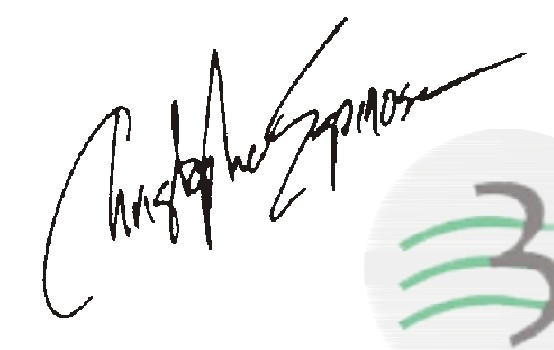 Christopher Espinosa
3